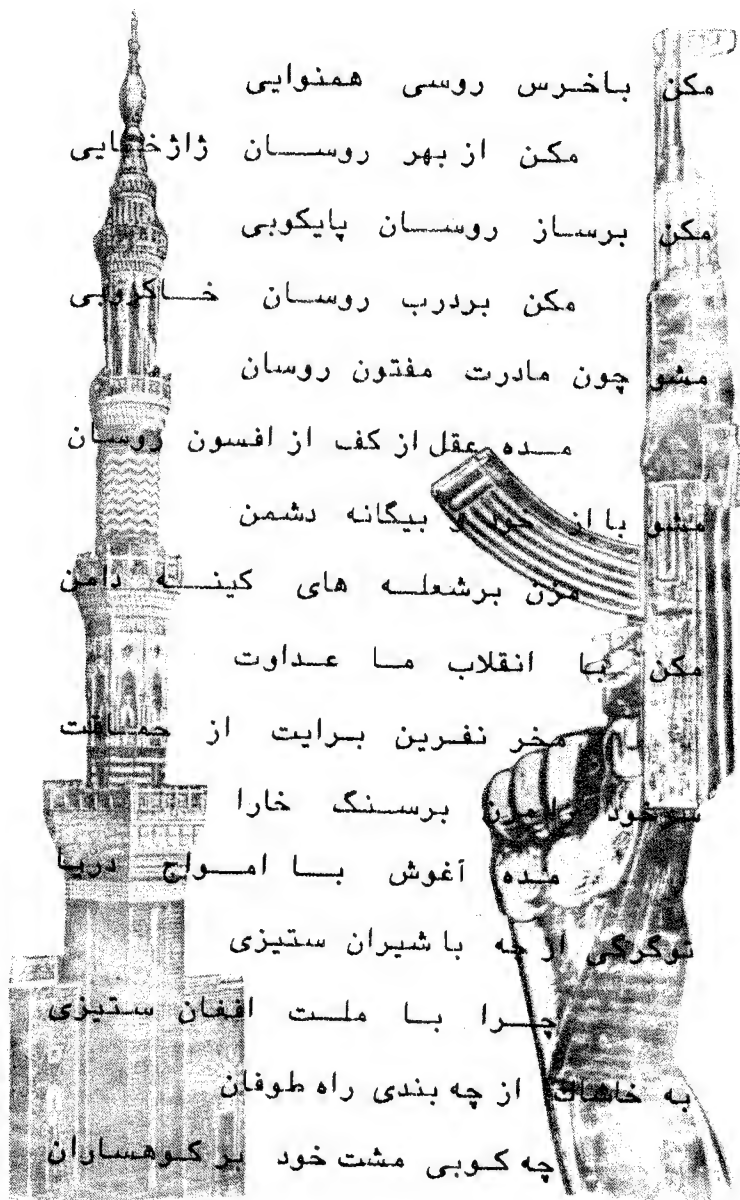 مکن باخرس روسی همنوایی
مکن از بهر روسان ژاژخایی
مکن برساز روسان پایکوبی
مکن بردرب روسان خاکروبی
مشو چون مادرت مفتون روسان
مده عقل از کف از افسون روسان
مشو با از خود و بیگانه دشمن
مزن برشعله های کینه دامن
مکن با انقلاب ما عداوت
مخر نفرین برایت از حماقت
سرخود را مزن برسنگ خارا
مده آغوش با امواج دریا
توگرگی از چه با شیران ستیزی
چرا با ملت افغان ستیزی
به خاشاک از چه بندی راه طوفان
چه کوبی مشت خود بر کوهساران